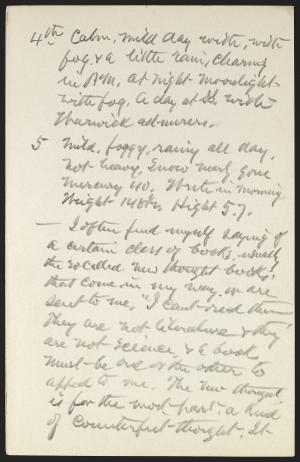 4th Calm, mild day with, with
fog & a little rain, clearing
in P.M. at night moonlight
with fog. A day at S.S. with
Warwick admirers.
5 Mild, foggy, rainy all day,
not heavy, Snow nearly gone
Mercury 40. Write in morning
Weight 140 lbs, Hight 5.7.
— I often find myself saying of
a certain class of books, usually
the so called New thought books,
that come in my way, or are
sent to me, "I can't read them
They are not literature & they
are not science, & a book
must be one or the other to
appeal to me. The New thought
is for the most part a kind
of counterfeit thought. It